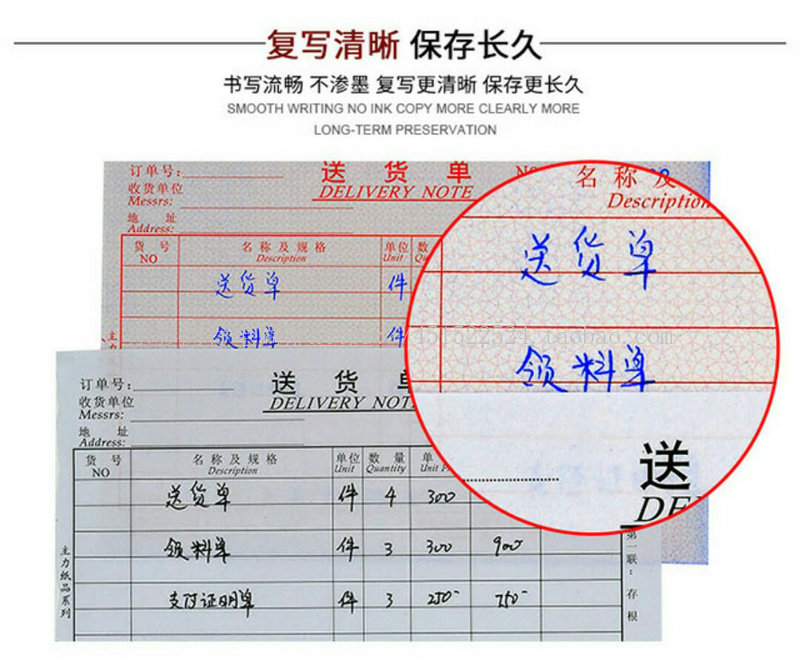 复写清晰 保存长久
书写流畅 不渗墨 复写更清晰 保存更长久
SMOOTH WRITING NO INK COPY MORE CLEARLY MORE
LONG-TERM PRESERVATION
订单号:
送 货 单
收货单位
Messrs:
DELIVERY NOTE
地 址
Address:
货 号 名 称 及 规 格 单位 数
NO Description Unit
送货单 件
领料单 件
名 称 及
Description
送货单
领料单
送
订单号:
送 货
收货单位
Messrs:
DELIVERY
地 址
Address:
货 号 名 称 及 规 格 单位 数 量 单
NO Description Unit Quantity Unit
送货单 件 4 300
领料单 件 3 300 900
支付证明单 件 3 250 750
主力纸品系列
第一联:存根